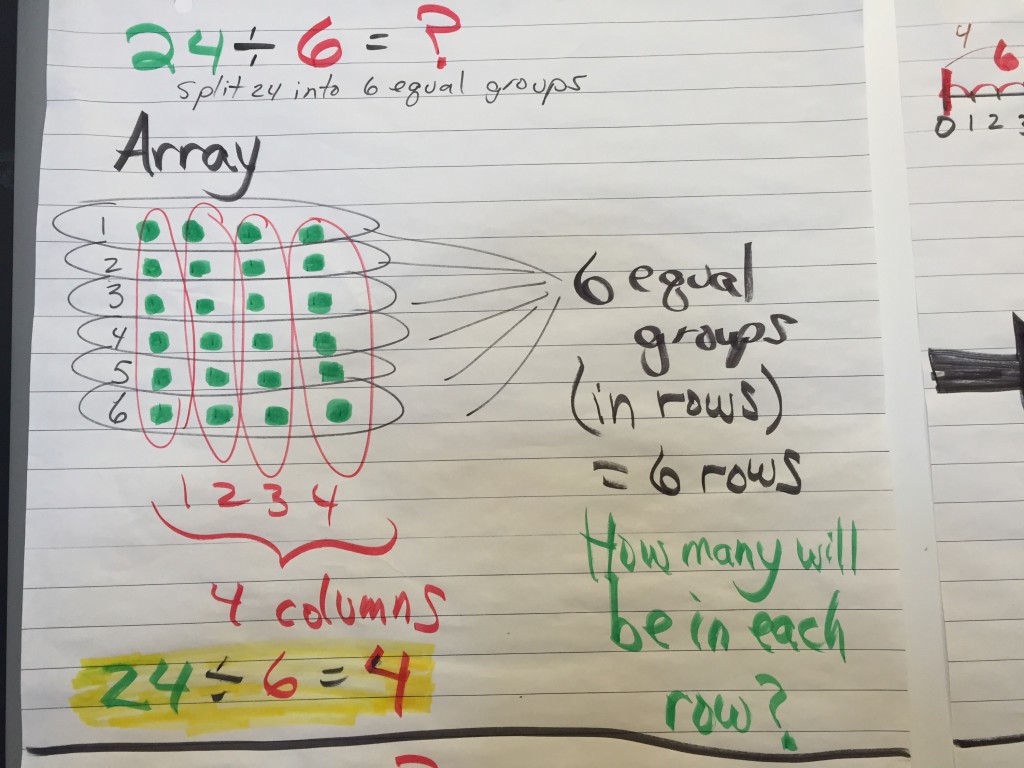 24 ÷ 6 = ?
split 24 into 6 equal groups
Array
1
2
3
4
5
6
1 2 3 4
4 columns
24 ÷ 6 = 4
6 equal
groups
(in rows)
= 6 rows
How many will
be in each
row?
?
4
6
0 1 2 3